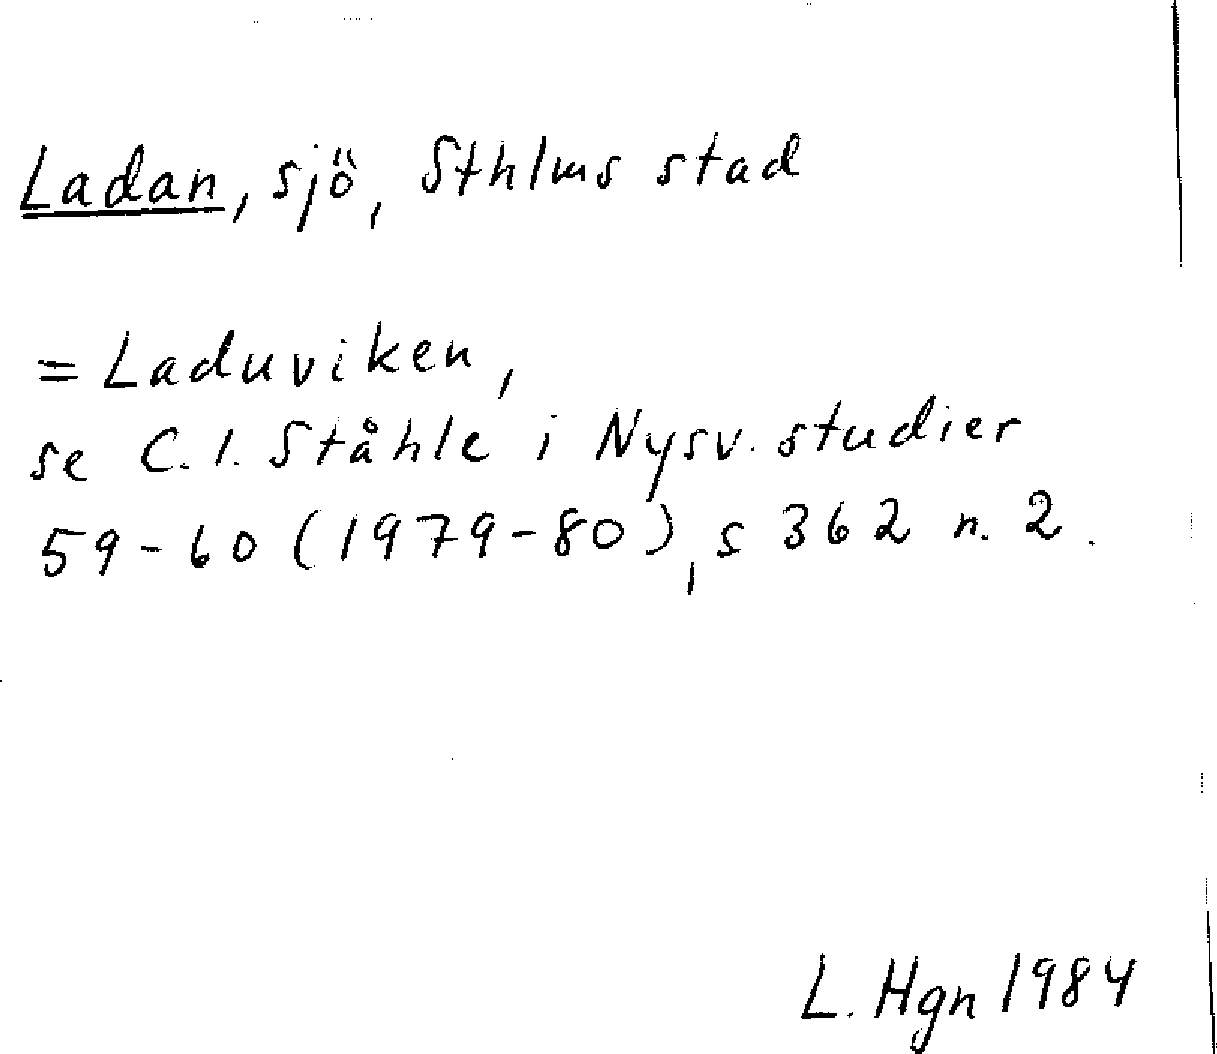 Ladan, sjö, Sthlms stad
= Laduviken,
se C. I. Ståhle i Nysv. studier
59-60 (1979-80), s 362 n. 2.
L. Hgn 1984